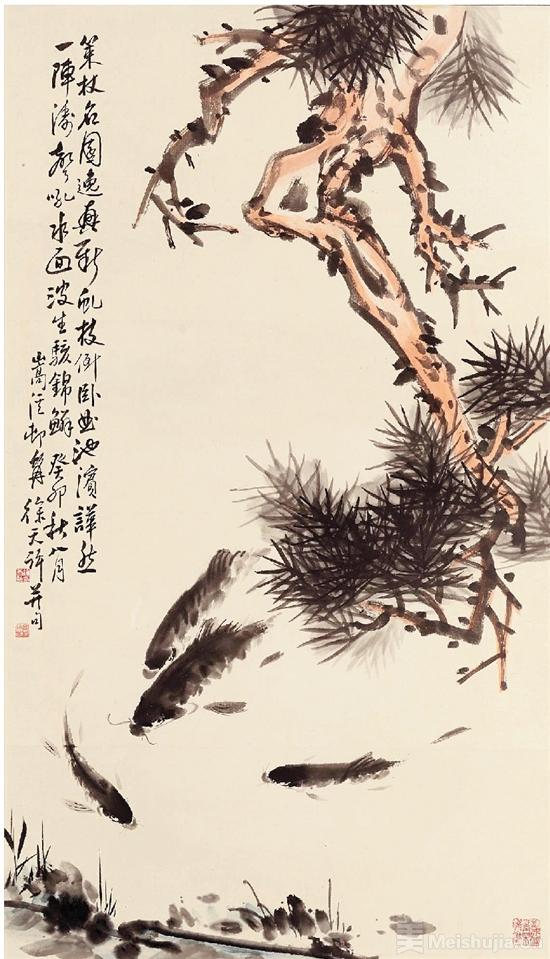 策杖名園逸興新虬枝倒卧曲池濱譁然
一陣濤聲吼水面波生駭錦鱗癸卯秋八月
嵩溪邨髯徐天許并句
Meishujia.cn